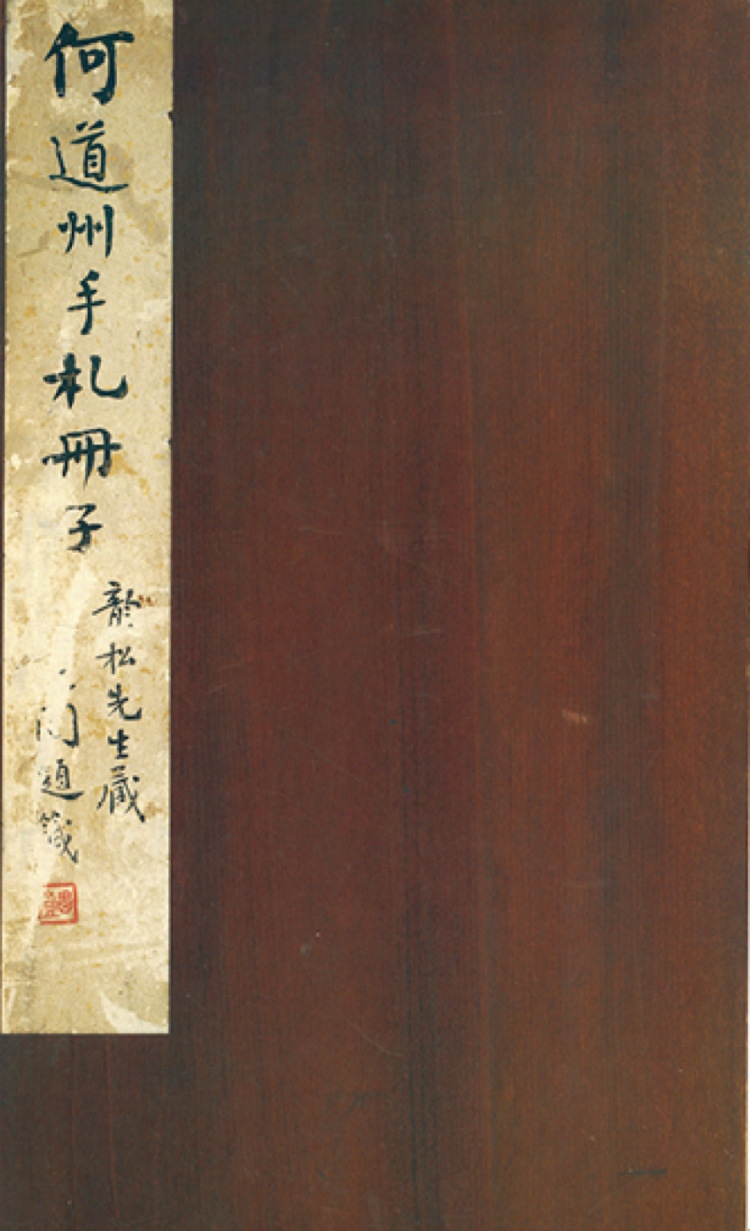 何道州手札冊子
龢松先生藏
題籤